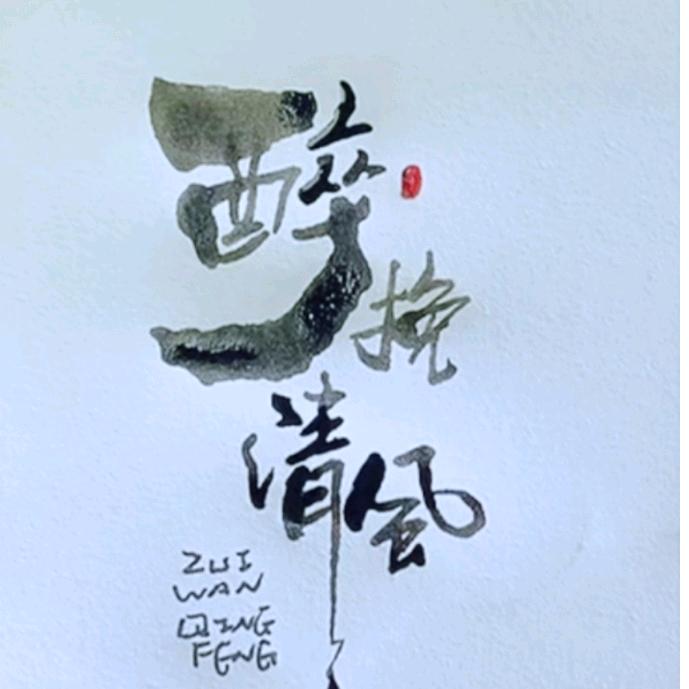 醉
挽
清風
ZUI
WAN
QING
FENG